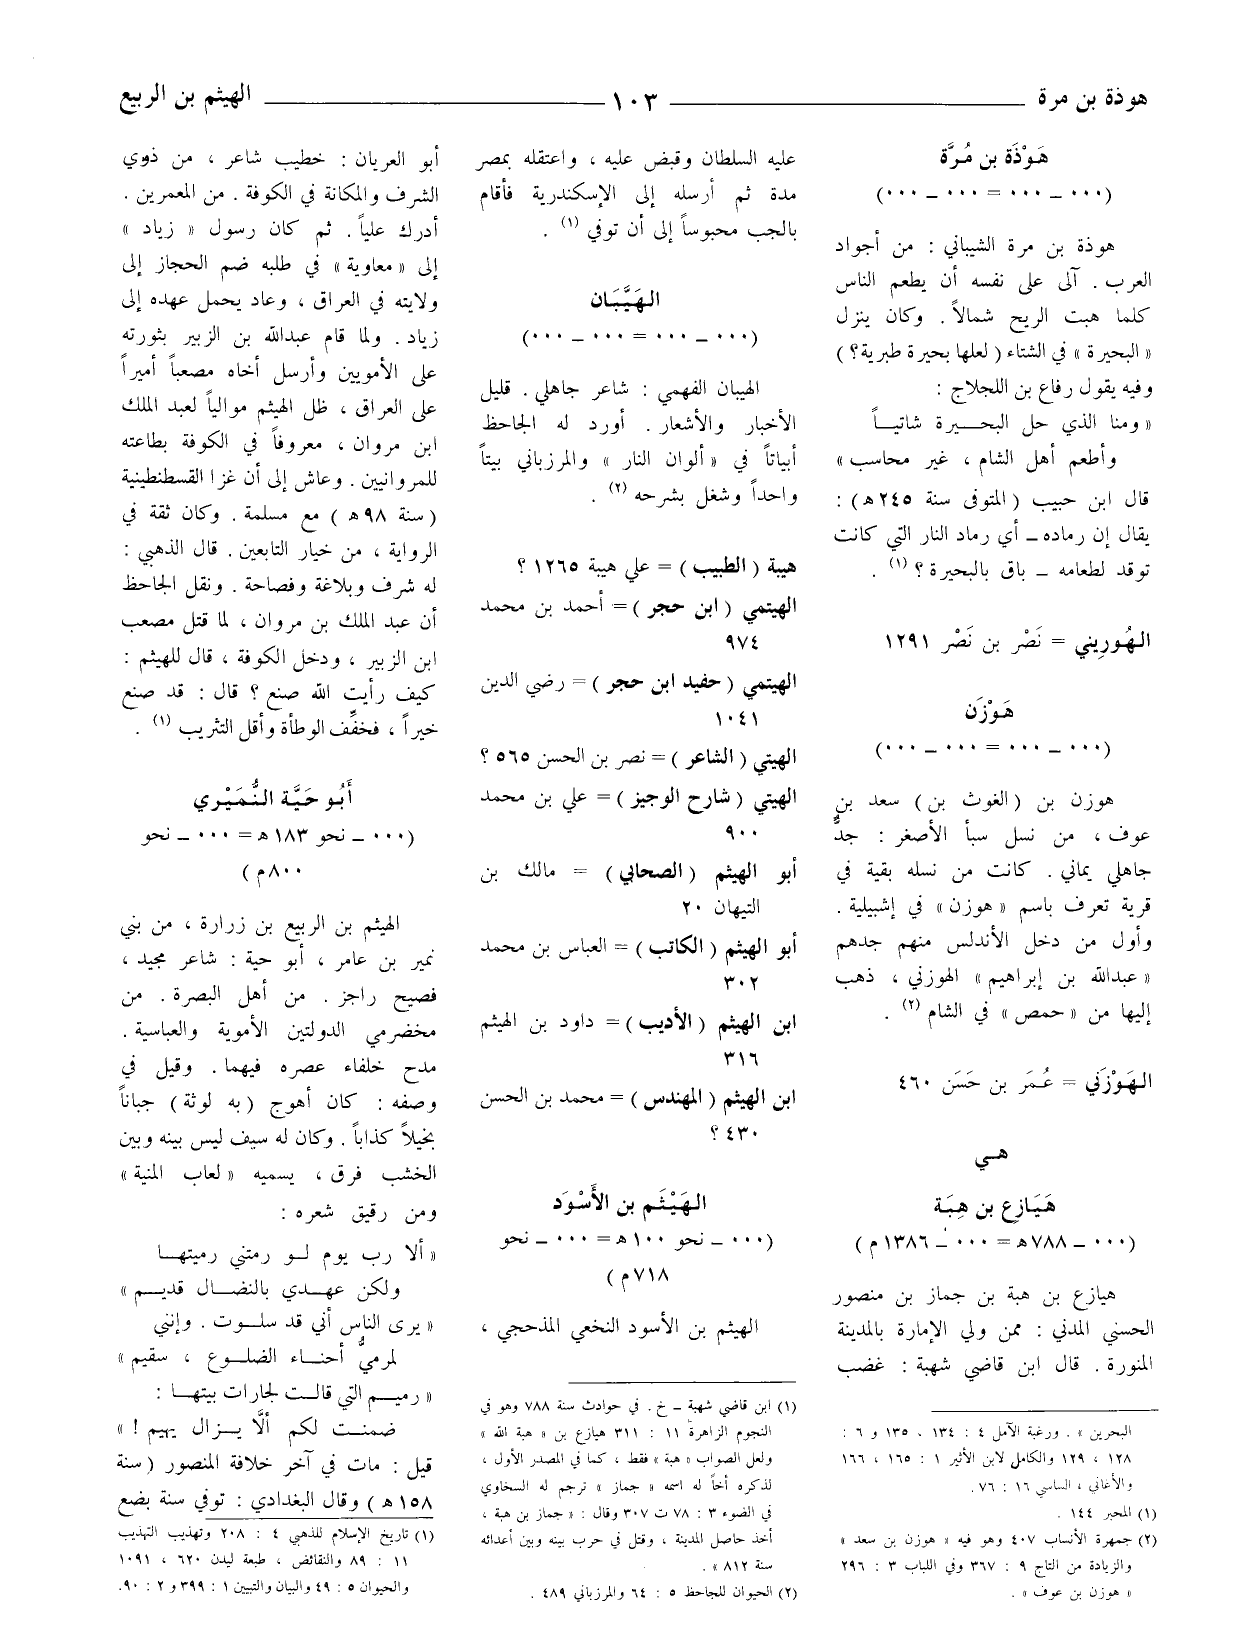 هوذة بن مرة ١٠٣ الهيثم بن الربيع
هَوْذَة بن مُرَّة
(٠٠٠ ــ ٠٠٠ = ٠٠٠ ــ ٠٠٠)
هوذة بن مرة الشيباني : من أجواد
العرب . آلى على نفسه أن يطعم الناس
كلما هبت الريح شمالاً . وكان ينزل
« البحيرة » في الشتاء ( لعلها بحيرة طبرية ؟ )
وفيه يقول رفاع بن اللجلاج :
« ومنا الذي حل البحيرة شاتياً
وأطعم أهل الشام ، غير محاسب »
قال ابن حبيب ( المتوفى سنة ٢٤٥ هـ ) :
يقال إن رماده ــ أي رماد النار التي كانت
توقد لطعامه ــ باق بالبحيرة ؟ (١) .
الهُوريني = نَصْر بن نَصْر ١٢٩١
هَوْزَن
(٠٠٠ ــ ٠٠٠ = ٠٠٠ ــ ٠٠٠)
هوزن بن ( الغوث بن ) سعد بن
عوف ، من نسل سبأ الأصغر : جدٌّ
جاهلي يماني . كانت من نسله بقية في
قرية تعرف باسم « هوزن » في إشبيلية .
وأول من دخل الأندلس منهم جدهم
« عبدالله بن إبراهيم » الهوزني ، ذهب
إليها من « حمص » في الشام (٢) .
الهَوْزَني = عُمَر بن حَسَن ٤٦٠
هـي
هَيَازع بن هِبَة
(٠٠٠ ــ ٧٨٨ هـ = ٠٠٠ ــ ١٣٨٦ م )
هيازع بن هبة بن جماز بن منصور
الحسني المدني : ممن ولي الإمارة بالمدينة
المنورة . قال ابن قاضي شهبة : غضب
البحرين » . ورغبة الآمل ٤ : ١٣٤ ، ١٣٥ و ٦ :
١٢٨ ، ١٢٩ والكامل لابن الأثير ١ : ١٦٥ ، ١٦٦
والأغاني ، الساسي ١٦ : ٧٦ .
(١) المحبر ١٤٤ .
(٢) جمهرة الأنساب ٤٠٧ وهو فيه « هوزن بن سعد »
والزيادة من التاج ٩ : ٣٦٧ وفي اللباب ٣ : ٢٩٦
« هوزن بن عوف » .
عليه السلطان وقبض عليه ، واعتقله بمصر
مدة ثم أرسله إلى الإسكندرية فأقام
بالجب محبوساً إلى أن توفي (١) .
الهَيَّبَان
(٠٠٠ ــ ٠٠٠ = ٠٠٠ ــ ٠٠٠)
الهيبان الفهمي : شاعر جاهلي . قليل
الأخبار والأشعار . أورد له الجاحظ
أبياتاً في « ألوان النار » والمرزباني بيتاً
واحداً وشغل بشرحه (٢) .
هيبة ( الطبيب ) = علي هيبة ١٢٦٥ ؟
الهيتمي ( ابن حجر ) = أحمد بن محمد
٩٧٤
الهيتمي ( حفيد ابن حجر ) = رضي الدين
١٠٤١
الهيتي ( الشاعر ) = نصر بن الحسن ٥٦٥ ؟
الهيتي ( شارح الوجيز ) = علي بن محمد
٩٠٠
أبو الهيثم ( الصحابي ) = مالك بن
التيهان ٢٠
أبو الهيثم ( الكاتب ) = العباس بن محمد
٣٠٢
ابن الهيثم ( الأديب ) = داود بن الهيثم
٣١٦
ابن الهيثم ( المهندس ) = محمد بن الحسن
٤٣٠ ؟
الهَيْثَم بن الأَسْوَد
(٠٠٠ ــ نحو ١٠٠ هـ = ٠٠٠ ــ نحو
٧١٨ م )
الهيثم بن الأسود النخعي المذحجي ،
(١) ابن قاضي شهبة ــ خ . في حوادث سنة ٧٨٨ وهو في
النجوم الزاهرة ١١ : ٣١١ هيازع بن « هبة الله »
ولعل الصواب « هبة » فقط ، كما في المصدر الأول ،
لذكره أخاً له اسمه « جماز » ترجم له السخاوي
في الضوء ٣ : ٧٨ ت ٣٠٧ وقال : « جماز بن هبة ،
أخذ حاصل المدينة ، وقتل في حرب بينه وبين أعدائه
سنة ٨١٢ » .
(٢) الحيوان للجاحظ ٥ : ٦٤ والمرزباني ٤٨٩ .
أبو العريان : خطيب شاعر ، من ذوي
الشرف والمكانة في الكوفة . من المعمرين .
أدرك علياً . ثم كان رسول « زياد »
إلى « معاوية » في طلبه ضم الحجاز إلى
ولايته في العراق ، وعاد يحمل عهده إلى
زياد . ولما قام عبدالله بن الزبير بثورته
على الأمويين وأرسل أخاه مصعباً أميراً
على العراق ، ظل الهيثم موالياً لعبد الملك
ابن مروان ، معروفاً في الكوفة بطاعته
للمروانيين . وعاش إلى أن غزا القسطنطينية
( سنة ٩٨ هـ ) مع مسلمة . وكان ثقة في
الرواية ، من خيار التابعين . قال الذهبي :
له شرف وبلاغة وفصاحة . ونقل الجاحظ
أن عبد الملك بن مروان ، لما قتل مصعب
ابن الزبير ، ودخل الكوفة ، قال للهيثم :
كيف رأيت الله صنع ؟ قال : قد صنع
خيراً ، فخفِّف الوطأة وأقل التثريب (١) .
أَبُو حَيَّة النُّمَيْري
(٠٠٠ ــ نحو ١٨٣ هـ = ٠٠٠ ــ نحو
٨٠٠ م )
الهيثم بن الربيع بن زرارة ، من بني
نمير بن عامر ، أبو حية : شاعر مجيد ،
فصيح راجز . من أهل البصرة . من
مخضرمي الدولتين الأموية والعباسية .
مدح خلفاء عصره فيهما . وقيل في
وصفه : كان أهوج ( به لوثة ) جباناً
بخيلاً كذاباً . وكان له سيف ليس بينه وبين
الخشب فرق ، يسميه « لعاب المنية »
ومن رقيق شعره :
« ألا رب يوم لو رمتني رميتها
ولكن عهدي بالنضال قديم »
« يرى الناس أني قد سلوت . وإنني
لمرميُّ أحناء الضلوع ، سقيم »
« رميم التي قالت لجارات بيتها :
ضمنت لكم ألاَّ يزال يهيم ! »
قيل : مات في آخر خلافة المنصور ( سنة
١٥٨ هـ ) وقال البغدادي : توفي سنة بضع
(١) تاريخ الإسلام للذهبي ٤ : ٢٠٨ وتهذيب التهذيب
١١ : ٨٩ والنقائض ، طبعة ليدن ٦٢٠ ، ١٠٩١
والحيوان ٥ : ٤٩ والبيان والتبيين ١ : ٣٩٩ و ٢ : ٩٠ .